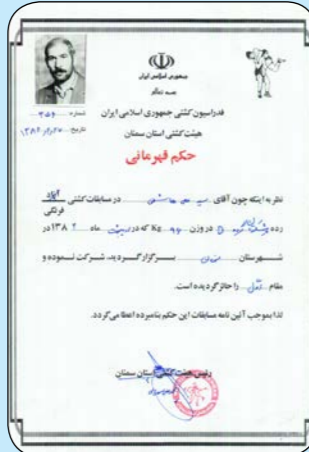 جمهوری اسلامی ایران
بسمه تعالی
فدراسیون کشتی جمهوری اسلامی ایران
هیئت کشتی استان سمنان
شماره ۳۵۶
تاریخ ۱۳۸۲
حکم قهرمانی
نظر به اینکه چون آقای سید در مسابقات کشتی آزاد
فرنگی
رده در وزن ۹۶ Kg که در ماه ۱۳۸۲ در
شهرستان برگزار گردید، شرکت نموده و
مقام اول را حائز گردیده است.
لذا بموجب آئین نامه مسابقات این حکم بنامبرده اعطا می گردد.
رئیس هیئت کشتی استان سمنان